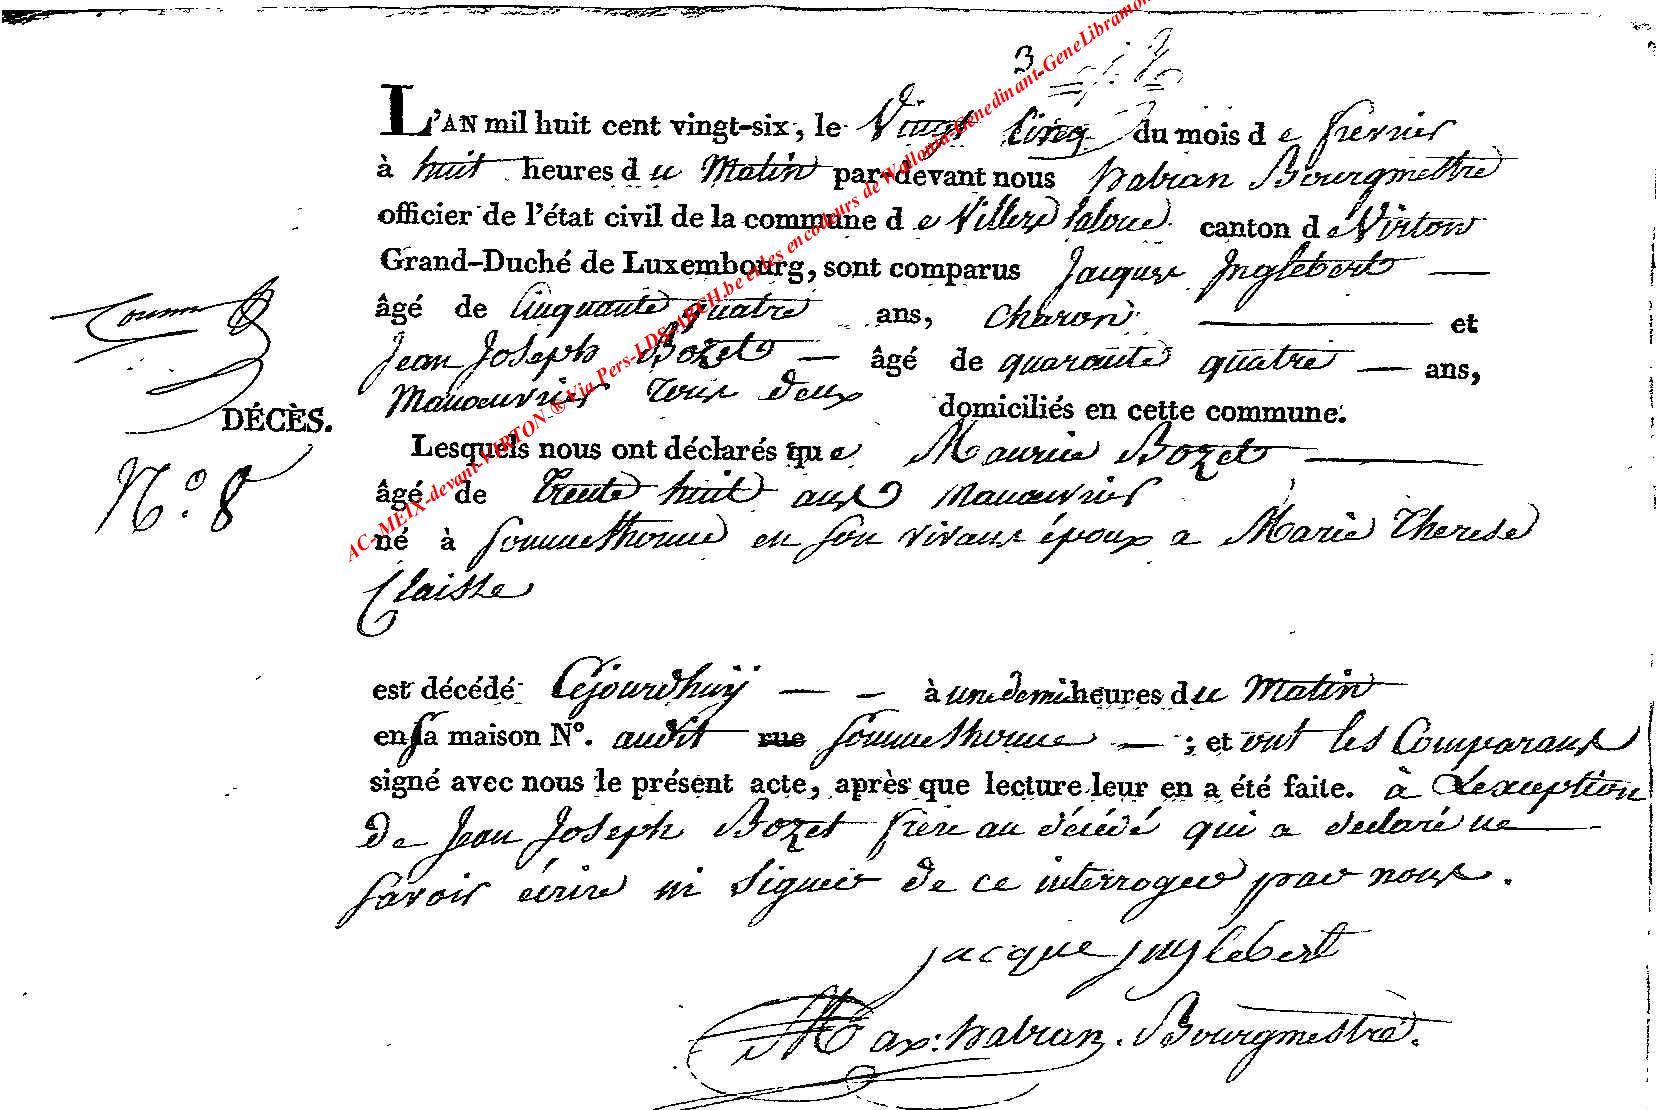 3
L'AN mil huit cent vingt-six, le Vingt Cinq du mois d e fievrier
à huit heures d u Matin par-devant nous habran Bourgmettre
officier de l'état civil de la commune d e Villers laloue canton d e Virton
Grand-Duché de Luxembourg, sont comparus Jacques Inglebert
âgé de Cinquante quatre ans, Charon et
Jean Joseph Bozet âgé de quarante quatre ans,
Manœuvrier tous deux domiciliés en cette commune.
DÉCÈS.
N.o 8
Lesquels nous ont déclarés qu e Maurice Bozet
âgé de trente huit ans manœuvrier
né à Sommethonne en son vivant époux a Marie Therese
Claisse
est décédé Céjourdhuÿ à une demi heures du Matin
en sa maison No. audit rue Sommethonne ; et ont les Comparant
signé avec nous le présent acte, après que lecture leur en a été faite. à Lexception
de Jean Joseph Bozet frere au décédé qui a declaré ne
savoir écrire ni signer de ce interroger par nous.
jacque jnglebert
Max: habran. Bourgmestre.
AC-MEIX-devant-VIRTON ® Via Pers-LDS-ARCH.be et les encodeurs de Wallonia-Genedinant-GeneLibramon